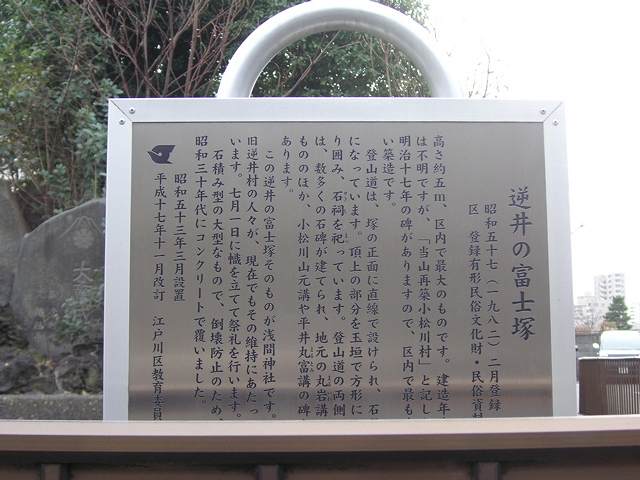 逆井の富士塚
昭和五十七(一九八二)二月登録
区 登録有形民俗文化財・民俗資
高さ約五m、区内で最大のものです。建造年
は不明ですが、「当山再築小松川村」と記し
明治十七年の碑がありますので、区内で最も
い築造です。
登山道は、塚の正面に直線で設けられ、石
になっています。頂上の部分を玉垣で方形に
り囲み、石祠を祀っています。登山道の両側
は、数多くの石碑が建てられ、地元の丸岩講
もののほか、小松川山元講や平井丸富講の碑
あります。
この逆井の富士塚そのものが浅間神社です。
旧逆井村の人々が、現在でもその維持にあたっ
います。七月一日に幟を立てて祭礼を行います。
石積み型の大型なもので、倒壊防止のため、
昭和三十年代にコンクリートで覆いました。
昭和五十三年三月設置
平成十七年十一月改訂 江戸川区教育委員